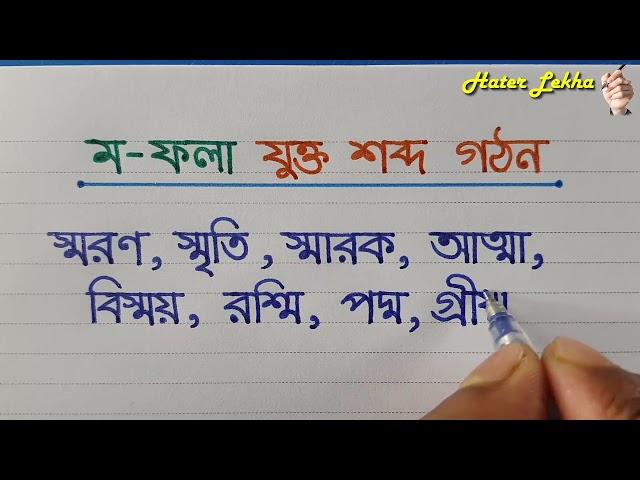 Hater Lekha
ম-ফলা যুক্ত শব্দ গঠন
স্মরণ, স্মৃতি, স্মারক, আত্মা,
বিস্ময়, রশ্মি, পদ্ম,